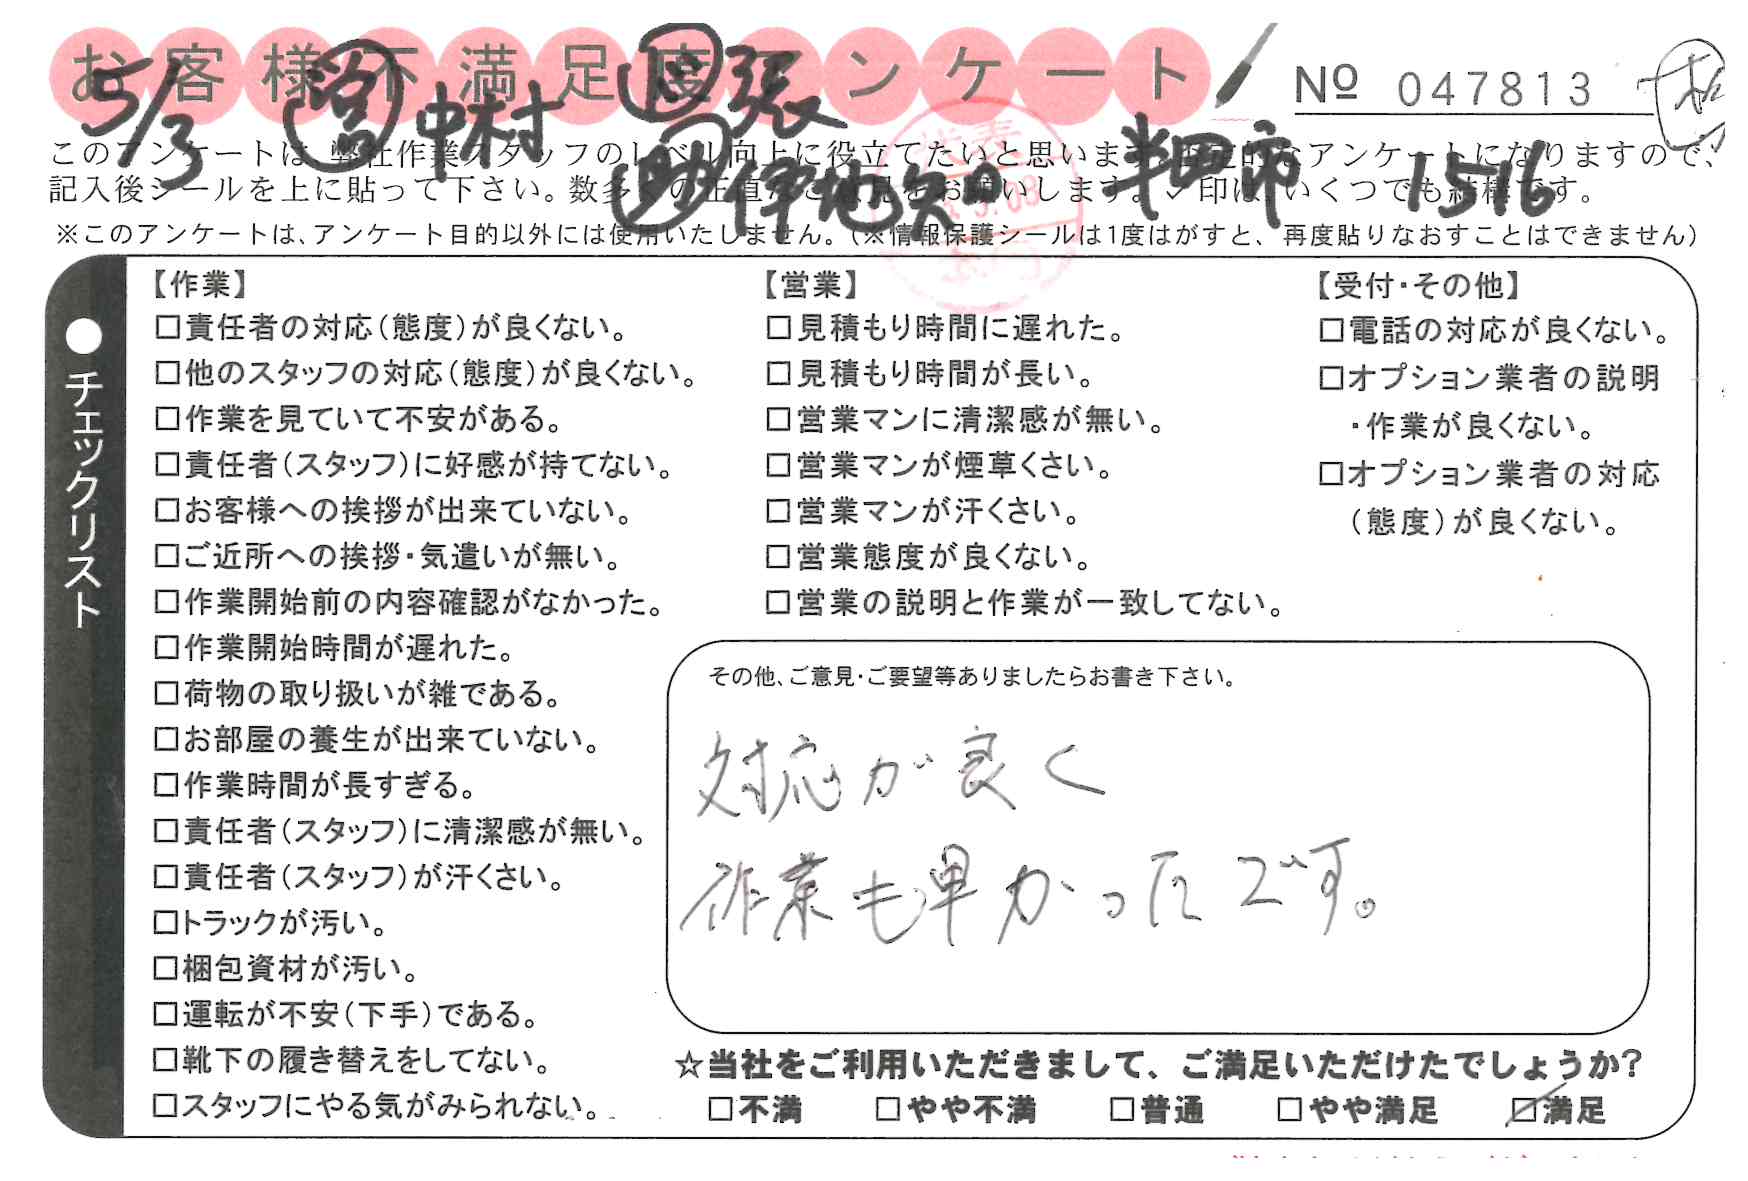 お客様不満足度アンケート
No 047813
5/3 営 中村 張
助 伊地知 半田市 1516
このアンケートは、弊社作業スタッフのレベル向上に役立てたいと思います。否定的なアンケートになりますので、
記入後シールを上に貼って下さい。数多くの正直なご意見をお願いします。✓印は、いくつでも結構です。
※このアンケートは、アンケート目的以外には使用いたしません。(※情報保護シールは1度はがすと、再度貼りなおすことはできません)
●チェックリスト
【作業】
□責任者の対応(態度)が良くない。
□他のスタッフの対応(態度)が良くない。
□作業を見ていて不安がある。
□責任者(スタッフ)に好感が持てない。
□お客様への挨拶が出来ていない。
□ご近所への挨拶・気遣いが無い。
□作業開始前の内容確認がなかった。
□作業開始時間が遅れた。
□荷物の取り扱いが雑である。
□お部屋の養生が出来ていない。
□作業時間が長すぎる。
□責任者(スタッフ)に清潔感が無い。
□責任者(スタッフ)が汗くさい。
□トラックが汚い。
□梱包資材が汚い。
□運転が不安(下手)である。
□靴下の履き替えをしてない。
□スタッフにやる気がみられない。
【営業】
□見積もり時間に遅れた。
□見積もり時間が長い。
□営業マンに清潔感が無い。
□営業マンが煙草くさい。
□営業マンが汗くさい。
□営業態度が良くない。
□営業の説明と作業が一致してない。
【受付・その他】
□電話の対応が良くない。
□オプション業者の説明
・作業が良くない。
□オプション業者の対応
(態度)が良くない。
その他、ご意見・ご要望等ありましたらお書き下さい。
対応が良く
作業も早かったです。
☆当社をご利用いただきまして、ご満足いただけたでしょうか?
□不満 □やや不満 □普通 □やや満足 ☑満足